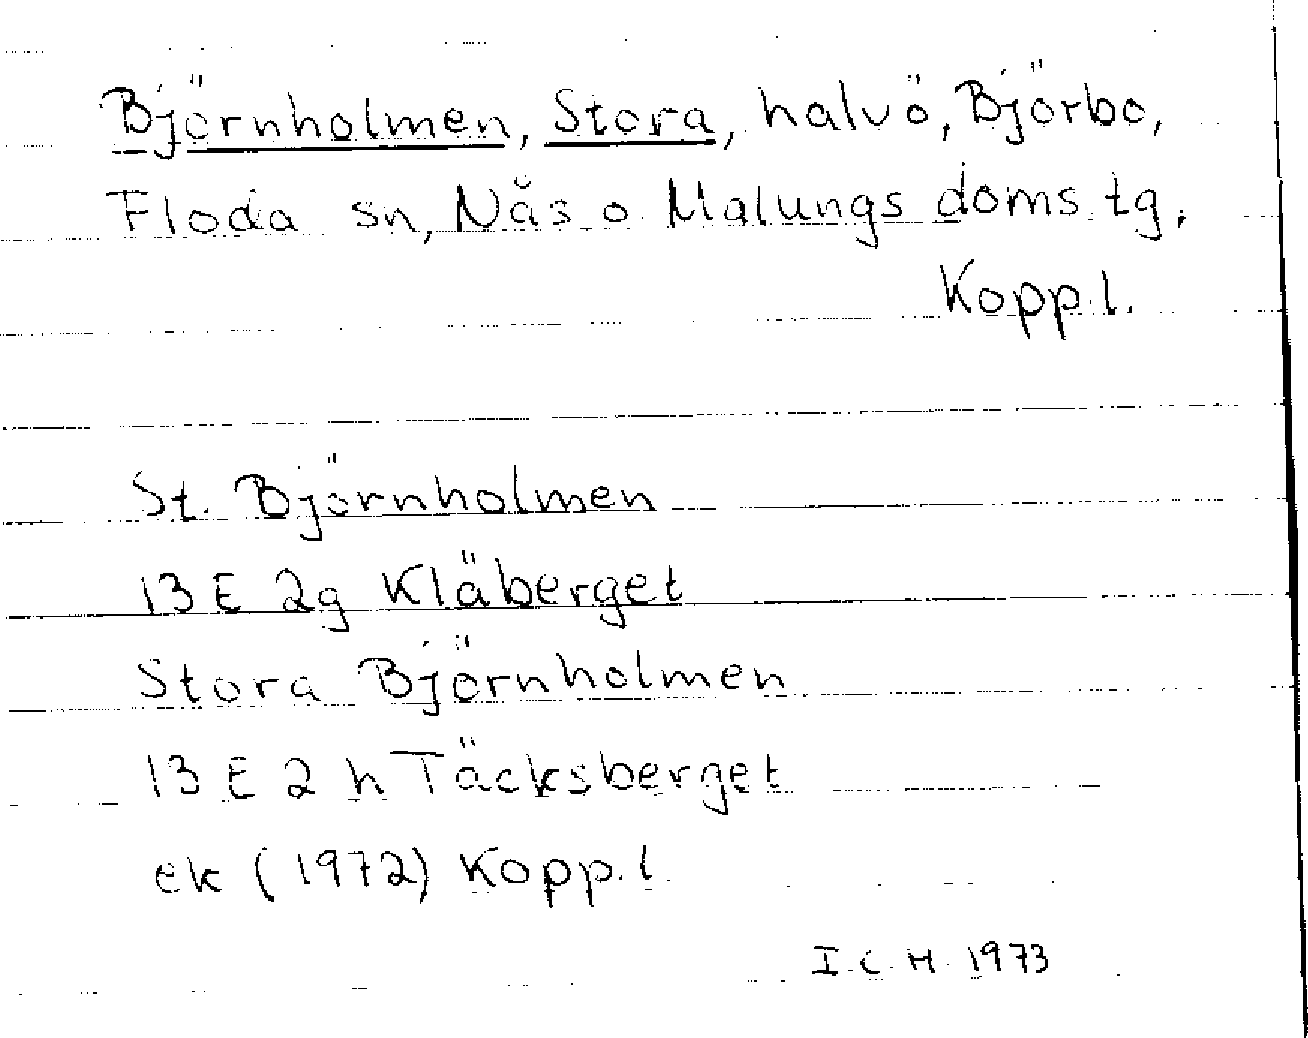 Björnholmen, Stora, halvö, Björbo,
Floda sn, Nås o Malungs doms.tg,
Kopp.l.
St. Björnholmen
13 E 2g Kläberget
Stora Björnholmen
13 E 2 h Täcksberget
ek (1972) Kopp.l.
I.C.H. 1973